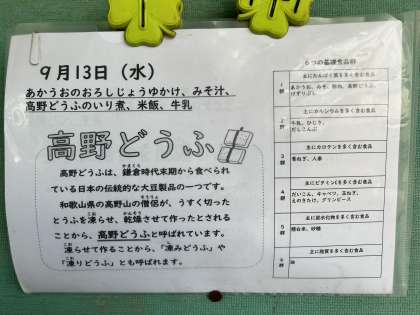 9月13日（水）
あかうおのおろしじょうゆかけ、みそ汁、
高野どうふのいり煮、米飯、牛乳
高野どうふ
高野どうふは、鎌倉時代末期から食べられ
ている日本の伝統的な大豆製品の一つです。
和歌山県の高野山の僧侶が、うすく切った
とうふを凍らせ、乾燥させて作ったとされる
ことから、高野どうふと呼ばれています。
凍らせて作ることから、「凍みどうふ」や
「凍りどうふ」とも呼ばれます。
6つの基礎食品群
1群
主にたんぱく質を多く含む食品
あかうお、みそ、卵、高野どうふ、
けずりぶし
2群
主にカルシウムを多く含む食品
牛乳、ひじき、
だしこんぶ
3群
主にカロテンを多く含む食品
葉ねぎ、人参
4群
主にビタミンCを多く含む食品
だいこん、キャベツ、玉ねぎ、
えのきたけ、グリンピース
5群
主に炭水化物を多く含む食品
精白米、砂糖
6群
主に脂質を多く含む食品
油